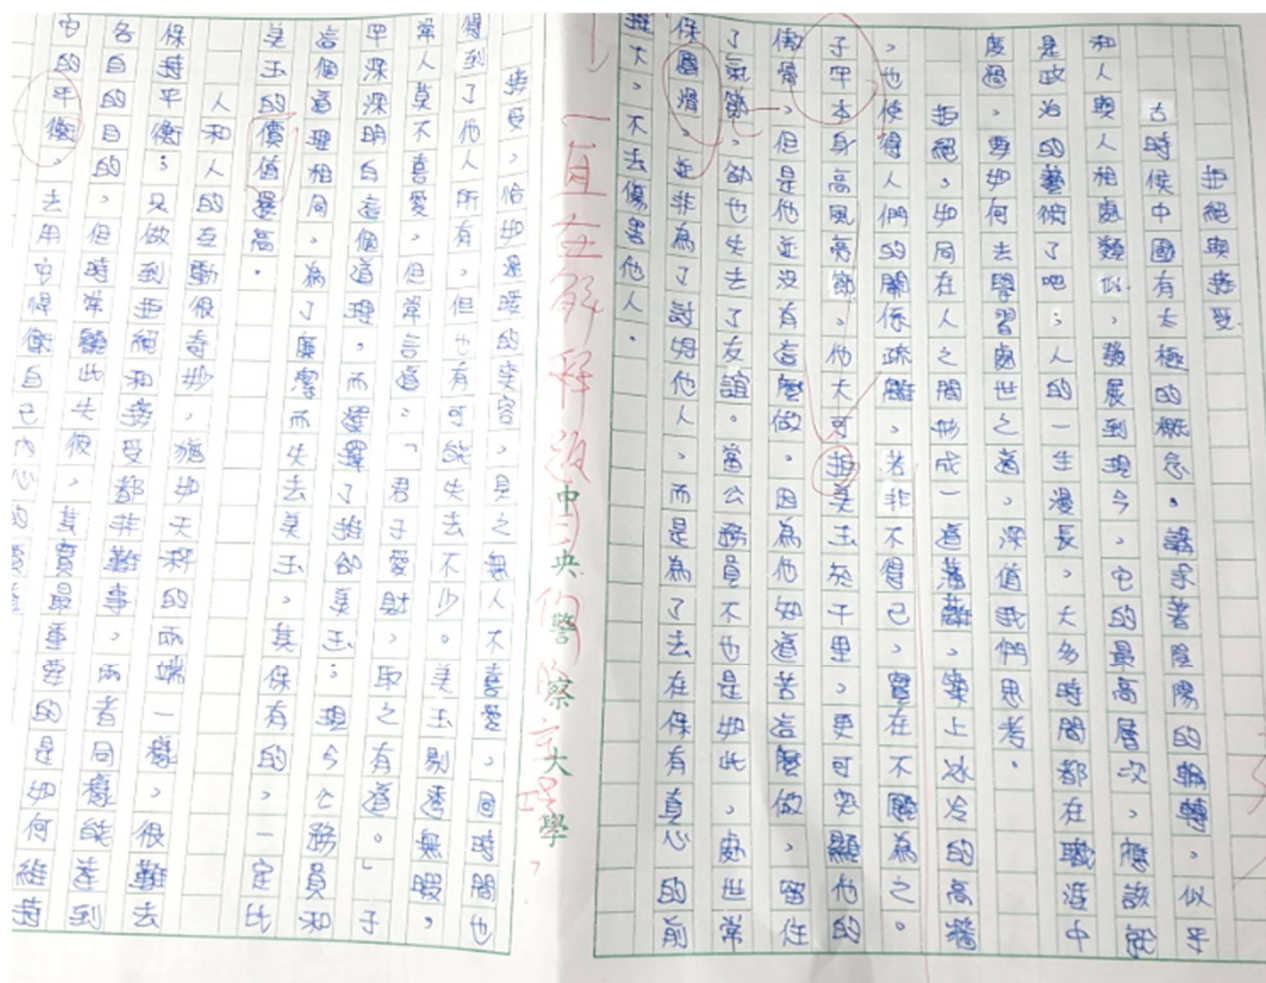 拒絕與接受
古時候中國有太極的概念。講求著陰陽的輪轉，似乎
和人與人相處類似，發展到現今，它的最高層次，應該就
是政治的藝術了吧；人的一生漫長，大多時間都在職涯中
度過，要如何去學習處世之道，深值我們思考。
拒絕，如同在人之間形成一道藩籬，築上冰冷的高牆
，也使得人們的關係疏離，若非不得已，實在不願為之。
子罕本身高風亮節，他大可拒美玉於千里，更可突顯他的
傲骨，但是他並沒有這麼做。因為他知道若這麼做，留住
了氣節，卻也失去了友誼。當公務員不也是如此，處世常
保圓滑，並非為了討好他人，而是為了去在保有真心的前
提下，不去傷害他人。
接受，恰如溫暖的笑容，見之無人不喜愛，同時間也
得到了他人所有，但也有可能失去不少。美玉剔透無暇，
常人莫不喜愛，但常言道：「君子愛財，取之有道。」子
罕深深明白這個道理，而選擇了推卻美玉；現今公務員和
這個道理相同，為了廉潔而失去美玉，其保有的，一定比
美玉的價值還高。
人和人的互動很奇妙，猶如天秤的兩端一樣，很難去
保持平衡；只做到拒絕和接受都非難事，兩者同樣能達到
各自的目的，但時常顧此失彼，其實最重要的是如何維持
它的平衡，去用它惦衡自己內心的
一直在解釋
中央警察大學